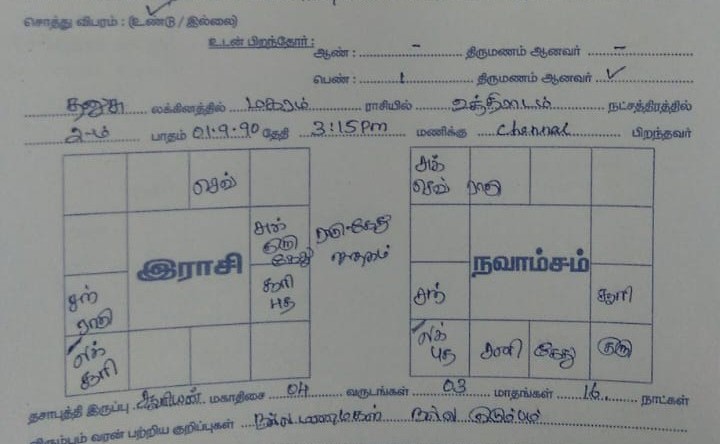 சொத்து விபரம் : (உண்டு / இல்லை)
உடன் பிறந்தோர் :
ஆண் : - திருமணம் ஆனவர் -
பெண் : 1 திருமணம் ஆனவர் ✓
தனுசு லக்கினத்தில் மகரம் ராசியில் உத்திராடம் நட்சத்திரத்தில்
2-ம் பாதம் 01.9.90 தேதி 3:15 Pm மணிக்கு Chennai பிறந்தவர்
செவ்
சுக் குரு கேது
சூரி புத
சந் ராகு
லக் சனி
இராசி
ராகு-கேது
சுக் செவ் ராகு
சந்
சூரி
லக் புத சனி கேது குரு
நவாம்சம்
தசாபுத்தி இருப்பு சூரியன் மகாதிசை 04 வருடங்கள் 03 மாதங்கள் 16 நாட்கள்
விரும்பும் வரன் பற்றிய குறிப்புகள் நல்ல மணமகள் நல்ல குடும்பம்